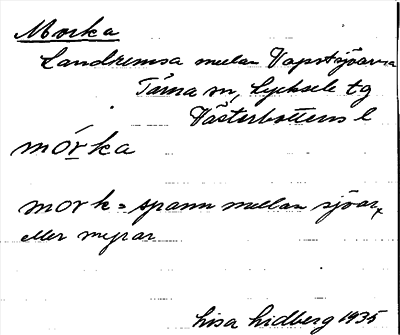 Morka
Landremsa mellan Vapstsjöarna
Tärna sn, Lycksele tg
Västerbottens l
mórka
mork = spann mellan sjöar,
eller myrar
Lisa Lidberg 1935